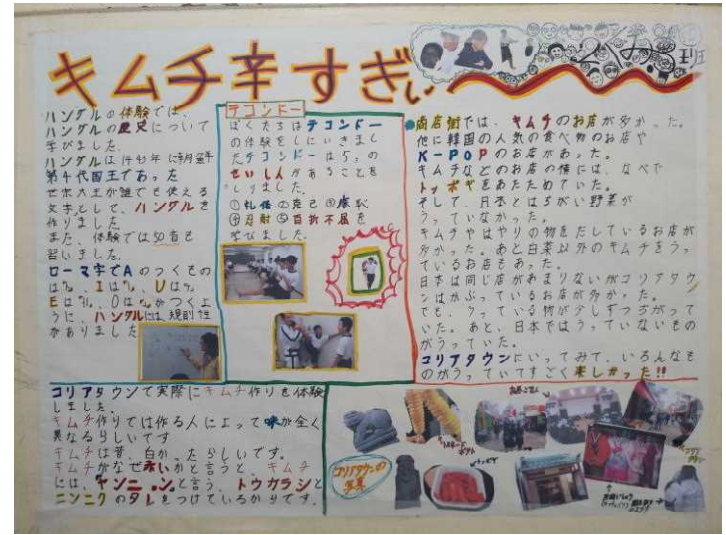 キムチ辛すぎぃ
ハングルの体験では、
ハングルの歴史について
学びました。
ハングルは1443年に朝鮮
第4代国王であった
世宗大王が誰でも使える
文字として、ハングルを
作りました
また、体験では50音を
習いました。
ローマ字でAのつくもの
は、Iは、Uは
Eは、Oはがつくよ
うに、ハングルには規則性
がありました
テコンドー
ぼくたちはテコンドー
の体験をしにいきまし
たテコンドーは5つの
せいしんがあることを
しりました。
①礼儀②克己③廉恥
④忍耐⑤百折不屈を
学びました。
商店街では、キムチのお店が多かった。
他に韓国の人気の食べ物のお店や
K-POPのお店があった。
キムチなどのお店の横には、なべで
トッポギをあたためていた。
そして、日本とはちがい野菜が
うっていなかった。
キムチやはやりの物をだしているお店が
多かった。あと白菜以外のキムチをうっ
ているお店もあった。
日本は同じ店があまりないがコリアタウ
ンはかぶっているお店が多かった。
でも、うっている物が少しずつちがって
いた。あと、日本ではうっていないもの
がうっていた。
コリアタウンにいってみて、いろんなも
のがうっていてすごく楽しかった!!
コリアタウンで実際にキムチ作りを体験
しました。
キムチ作りでは作る人によって味が全く
異なるらしいです
キムチは昔、白かったらしいです。
キムチがなぜ赤いかと言うと、キムチ
には、ヤンニョンと言う、トウガラシと
ニンニクのタレをつけているからです。
コリアタウンの
写真